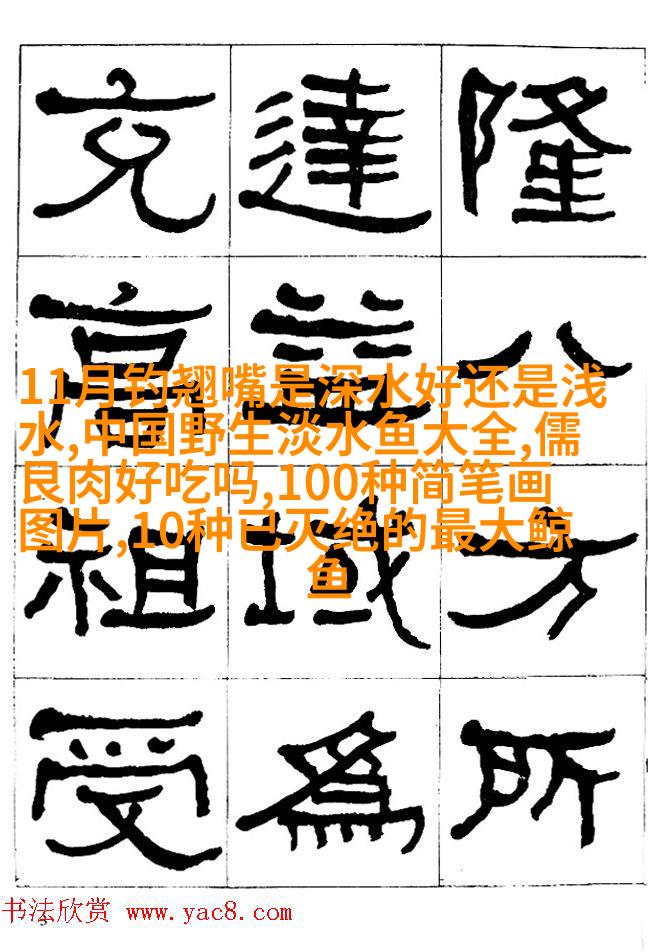 隆八方所
達益域為
充高祖受
11月钓翘嘴是深水好还是浅
水,中国野生淡水鱼大全,儒
艮肉好吃吗,100种简笔画
图片,10种已灭绝的最大鲸
鱼
3
书法欣赏 www.yac8.com